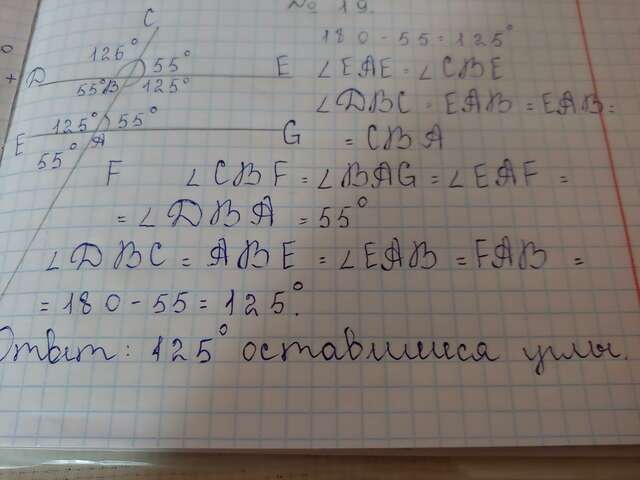 № 19.
C
125° 55°
D E
55° B 125°
125° 55°
E G
55° A
F
180-55=125°
∠EAE=∠CBE
∠DBC=EAB=EAB=
=CBA
∠CBF=∠BAG=∠EAF=
=∠DBA=55°
∠DBC=ABE=∠EAB=FAB=
=180-55=125°.
Ответ: 125° оставшиеся углы.